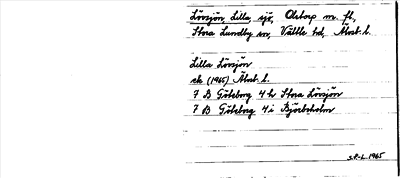 Lövsjön, Lilla, sjö, Olstorp m. fl.,
Stora Lundby sn, Vättle hd, Älvsb. l.
Lilla Lövsjön
ek (1965) Älvsb. l.
7 B Göteborg 4 h Stora Lövsjön
7 B Göteborg 4 i Björboholm
S.P-L. 1965